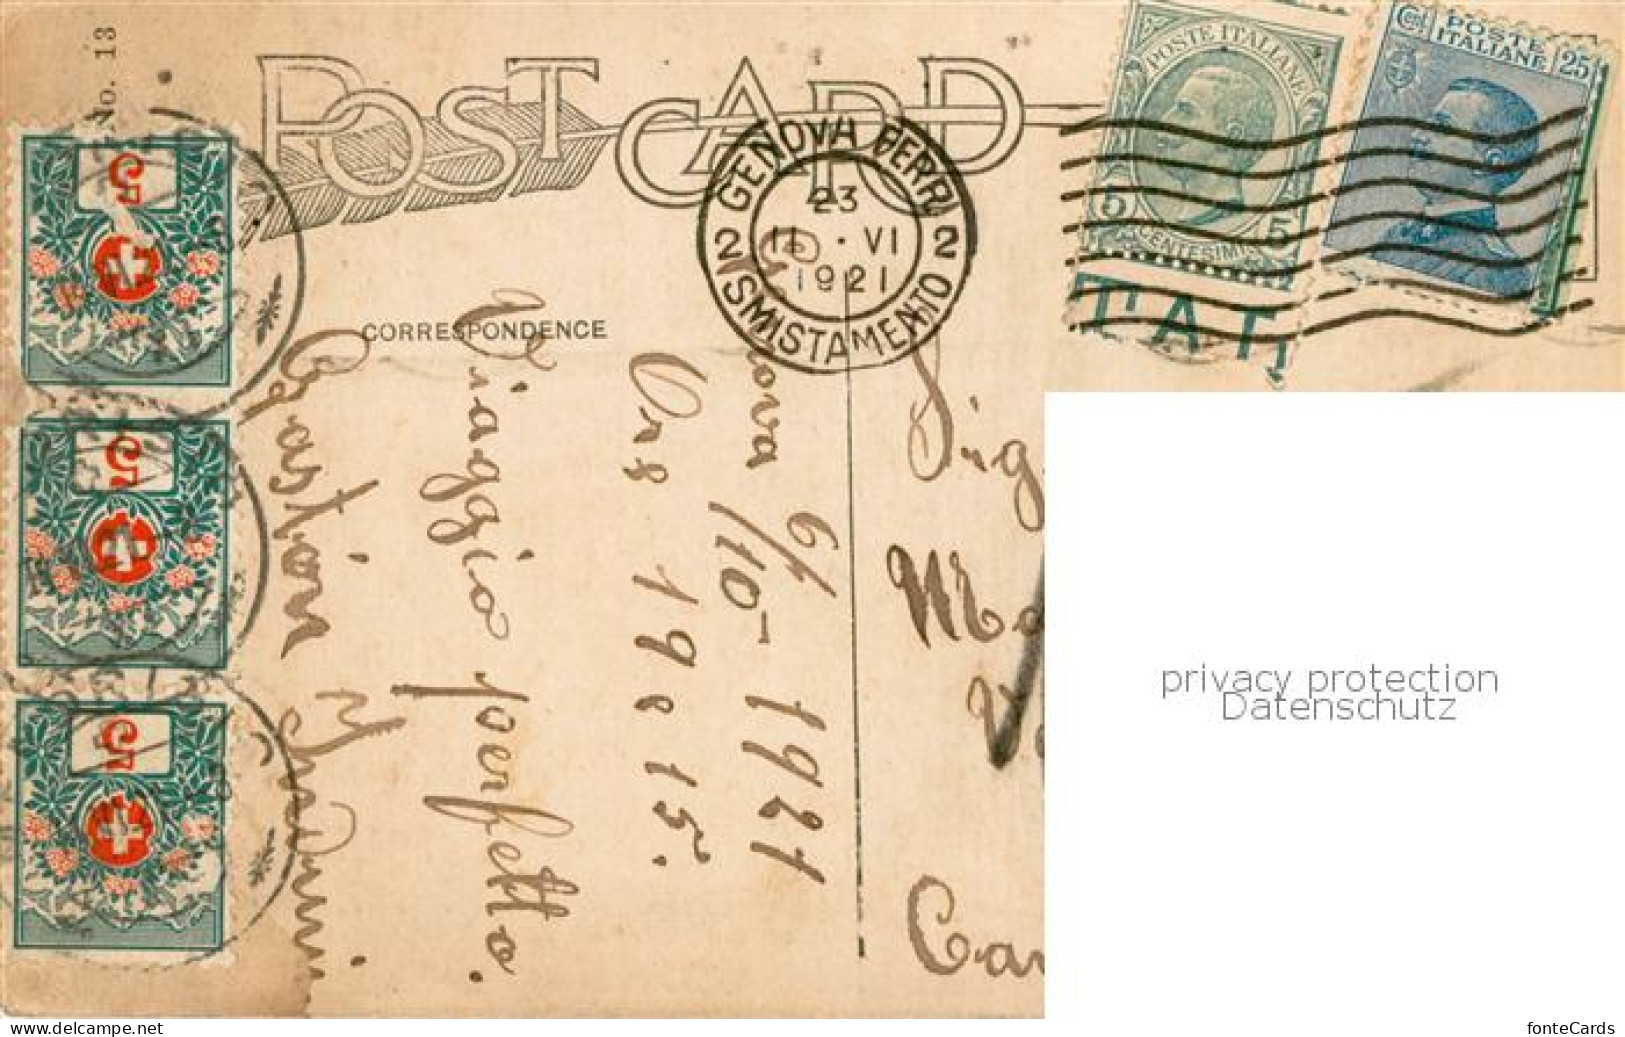 No. 13
POST CARD
CORRESPONDENCE
GENOVA FERR.
23
11 . VI
1921
2 SMISTAMENTO 2
POSTE ITALIANE
5 CENTESIMI 5
Cent. 25
POSTE ITALIANE
5
5
5
6/10-1921
Ors 19 e 15.
Viaggio perfetto.
Sig.
Car
privacy protection
Datenschutz
www.delcampe.net
fonteCards